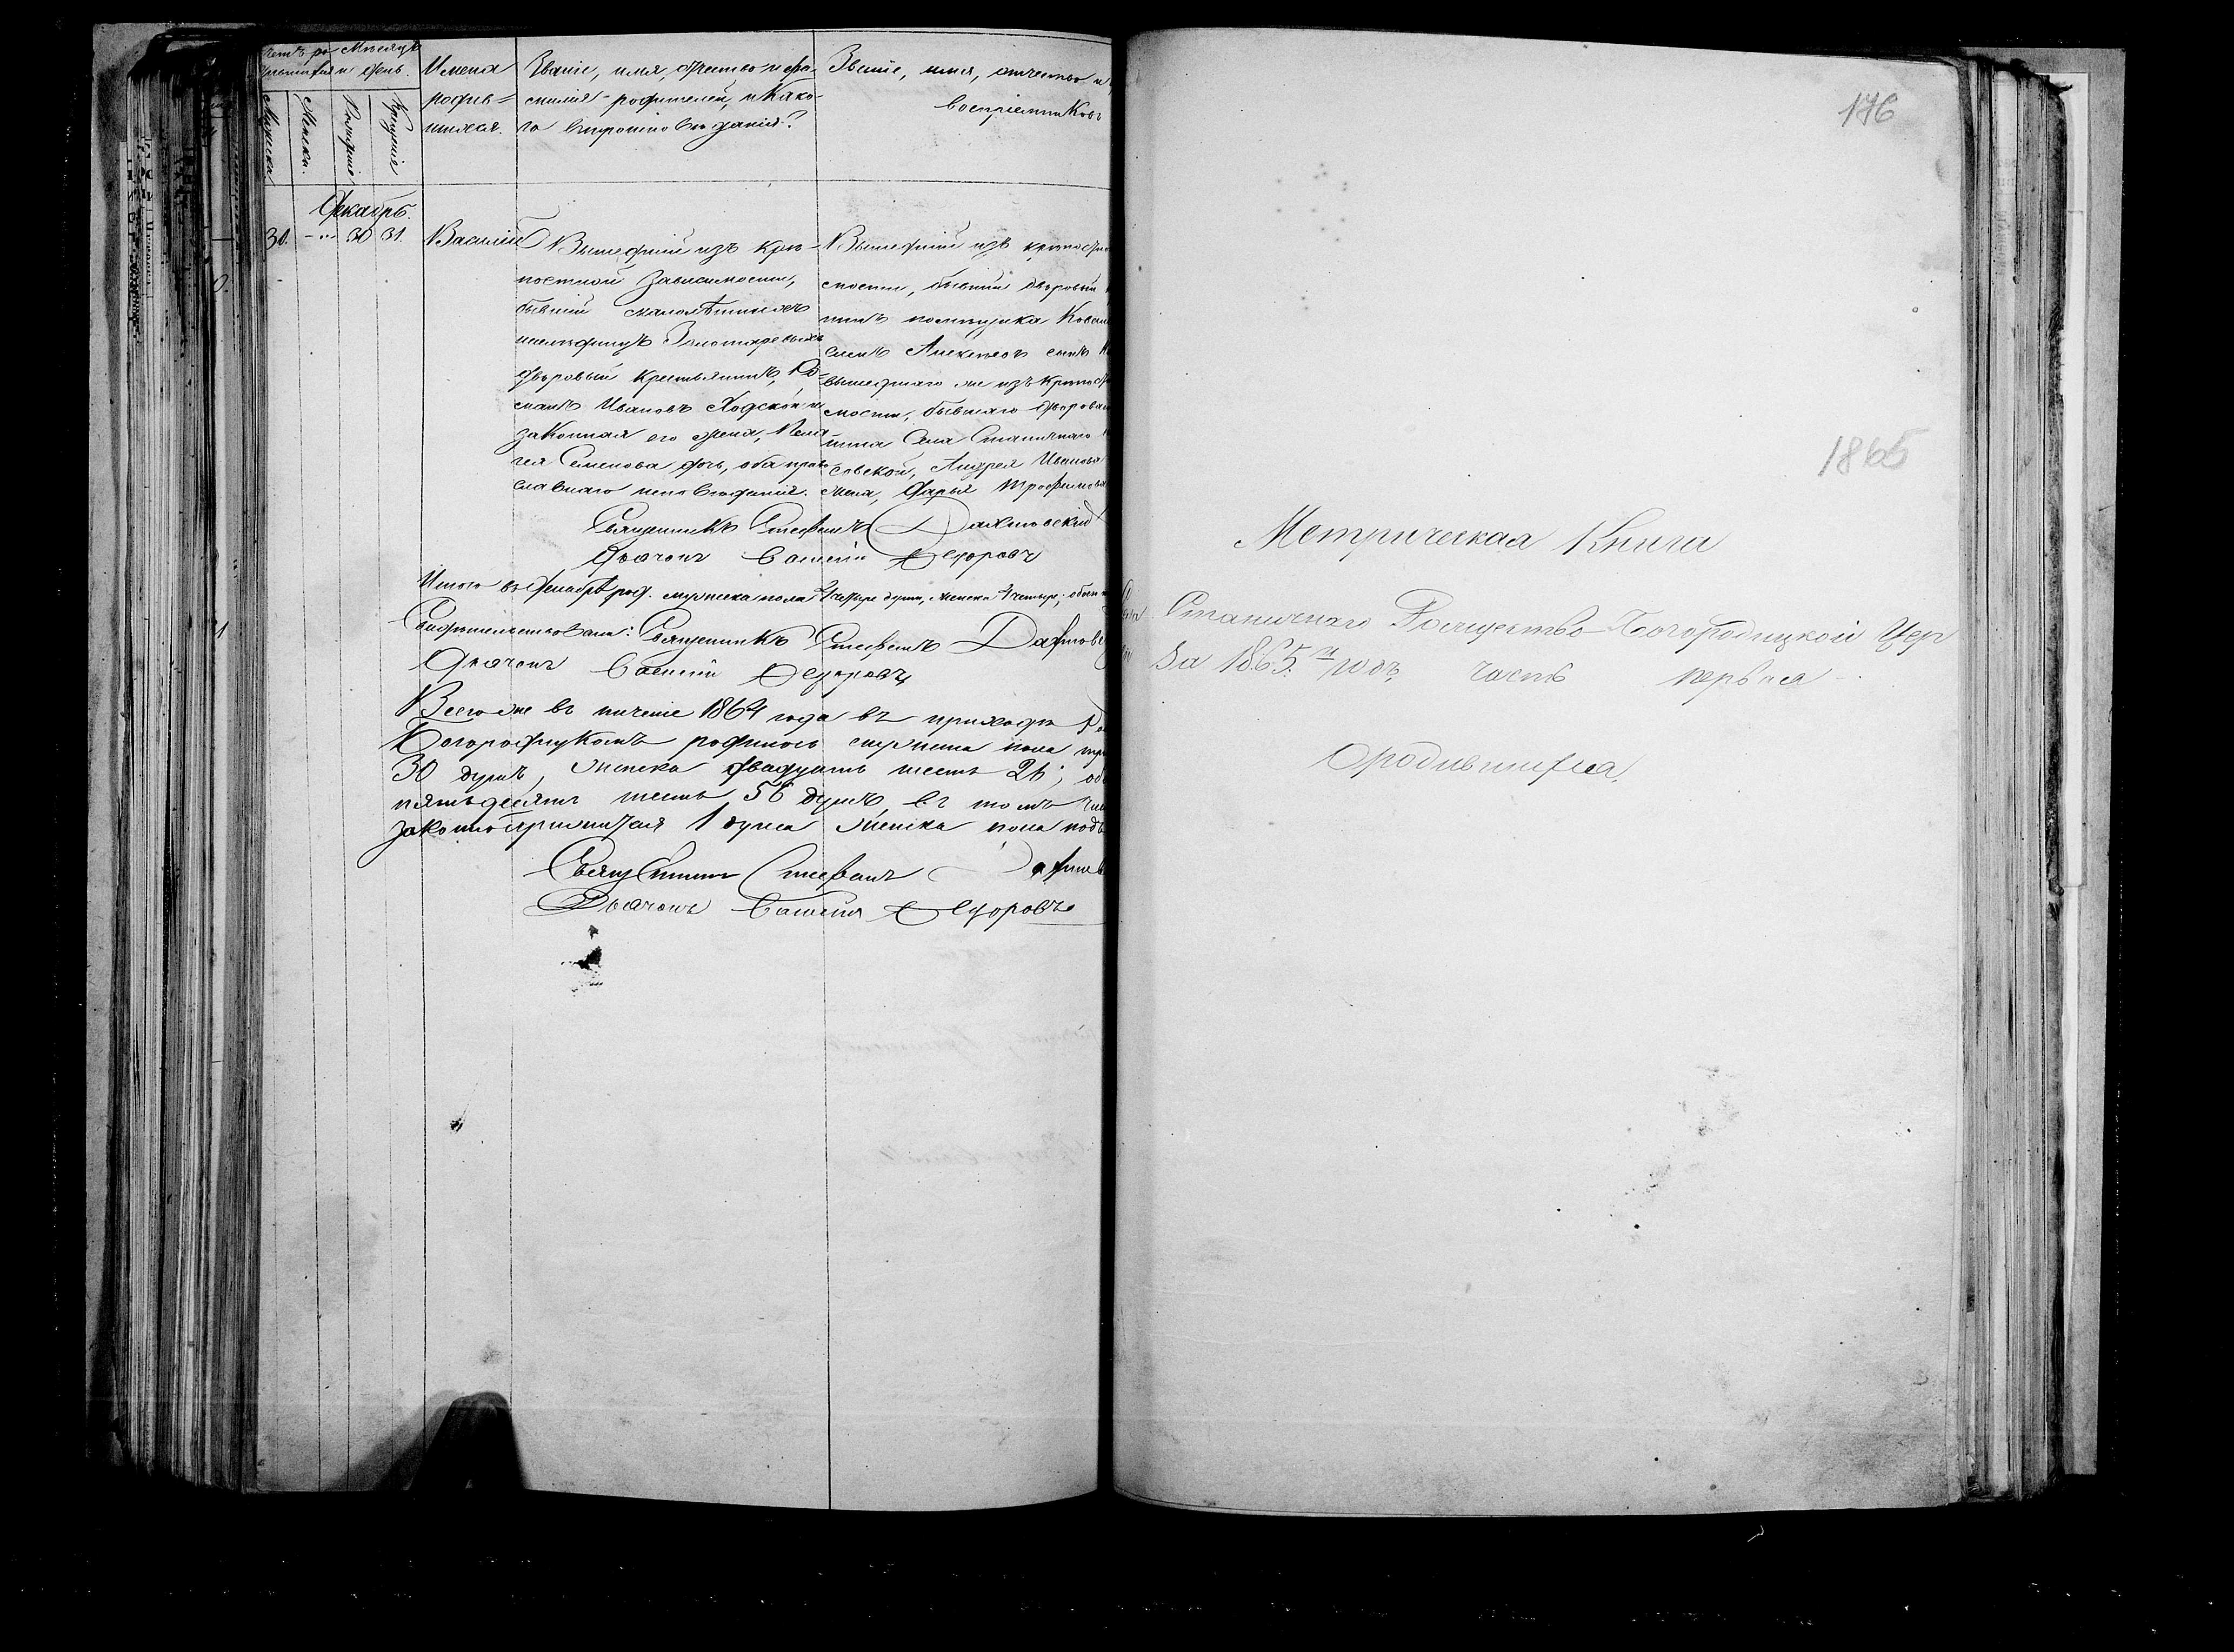 Счетъ ро- Мѣсяцъ
дившихся и день.
Мужска
Женска.
Рожденіе
Крещеніе
Имена
родив=
шихся.
Званіе, имя, отчество и фа-
милія родителей, и како-
го вѣроисповѣданія?
Званіе, имя, отчество и
воспріемниковъ
Декабрь.
30. -„- 30 31.
Василій
Вышедшій изъ крѣ-
постной зависимости,
бывшій малолѣтнихъ
Золотаревыхъ
дворовый крестьянинъ, Ро-
манъ Ивановъ Ходской и
законная его жена, Пела
гея Семенова дочь, оба право
славнаго исповѣданія.
Вышедшій изъ крѣпостно
мости, бывшій дворовый
нинъ помѣщика Ковал
Алексѣевъ сынъ
вышедшаго же изъ крѣпостн
мости, бывшаго дворова
нина Села Станичнаго
совской, Андрея Иванова
жена, Дарья Трофимова
Священникъ Стефанъ Дахновскій
Дьячокъ Василій Ѳедоровъ
Итого въ Декабрѣ род. мужеска пола 4 четыре души, женска 4 четыре; обоего
Свидѣтельствовали: Священникъ Стефанъ Дахновс
Дьячокъ Василій Ѳедоровъ
Всего же въ теченіе 1864 года въ приходѣ Ро
Богородицкомъ родилось мужеска пола три
30 душъ, женска двадцать шесть 26; обо
пятьдесятъ шесть 56 душъ, въ томъ чис
законнорожденная 1 душа женска пола подъ
Священникъ Стефанъ Дахнов
Дьячокъ Василій Ѳедоровъ
176
1865
Метрическая Книга
Станичнаго Рождество-Богородицкой Цер
За 1865.й годъ, часть первая
О родившихся.